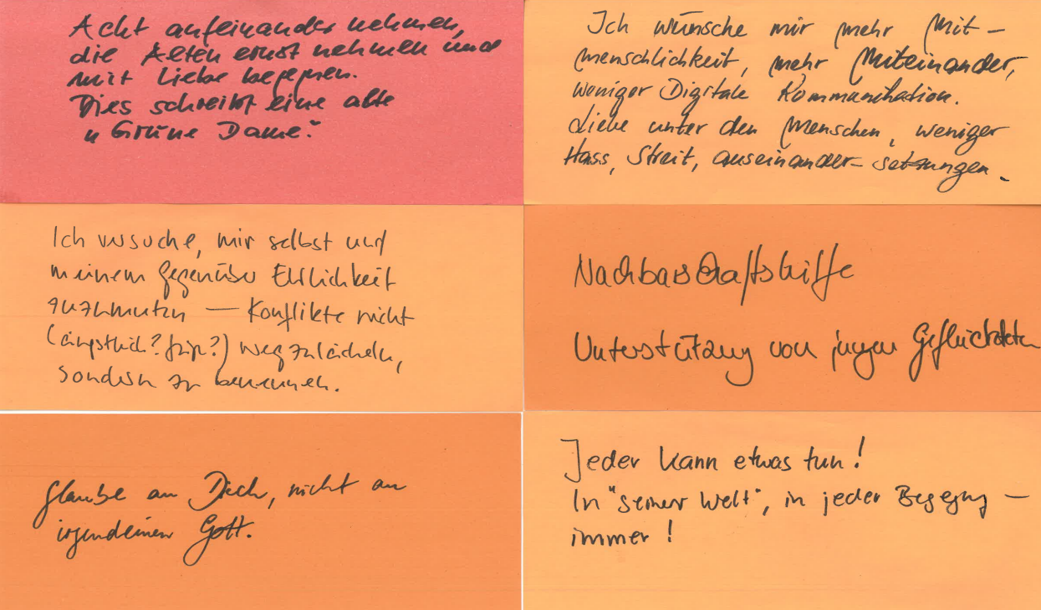 Acht aufeinander nehmen,
die Alten ernst nehmen und
mit Liebe begegnen.
Dies schreibt eine alte
"Grüne Dame".
Ich wünsche mir mehr Mit-
menschlichkeit, mehr Miteinander,
weniger Digitale Kommunikation.
Liebe unter den Menschen, weniger
Hass, Streit, auseinander-setzungen.
Ich versuche, mir selbst und
meinem Gegenüber Ehrlichkeit
zuzumuten — Konflikte nicht
(ängstlich? feige?) wegzulächeln,
sondern zu benennen.
Nachbarschaftshilfe
Unterstützung von jungen Geflüchteten
Glaube an Dich, nicht an
irgendeinen Gott.
Jeder kann etwas tun!
In "seiner Welt", in jeder Begegng —
immer!